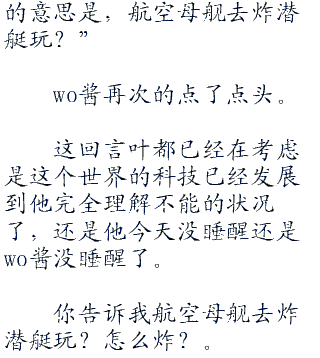 的意思是，航空母舰去炸潜
艇玩？”
wo酱再次的点了点头。
这回言叶都已经在考虑
是这个世界的科技已经发展
到他完全理解不能的状况
了，还是他今天没睡醒还是
wo酱没睡醒了。
你告诉我航空母舰去炸
潜艇玩？怎么炸？。